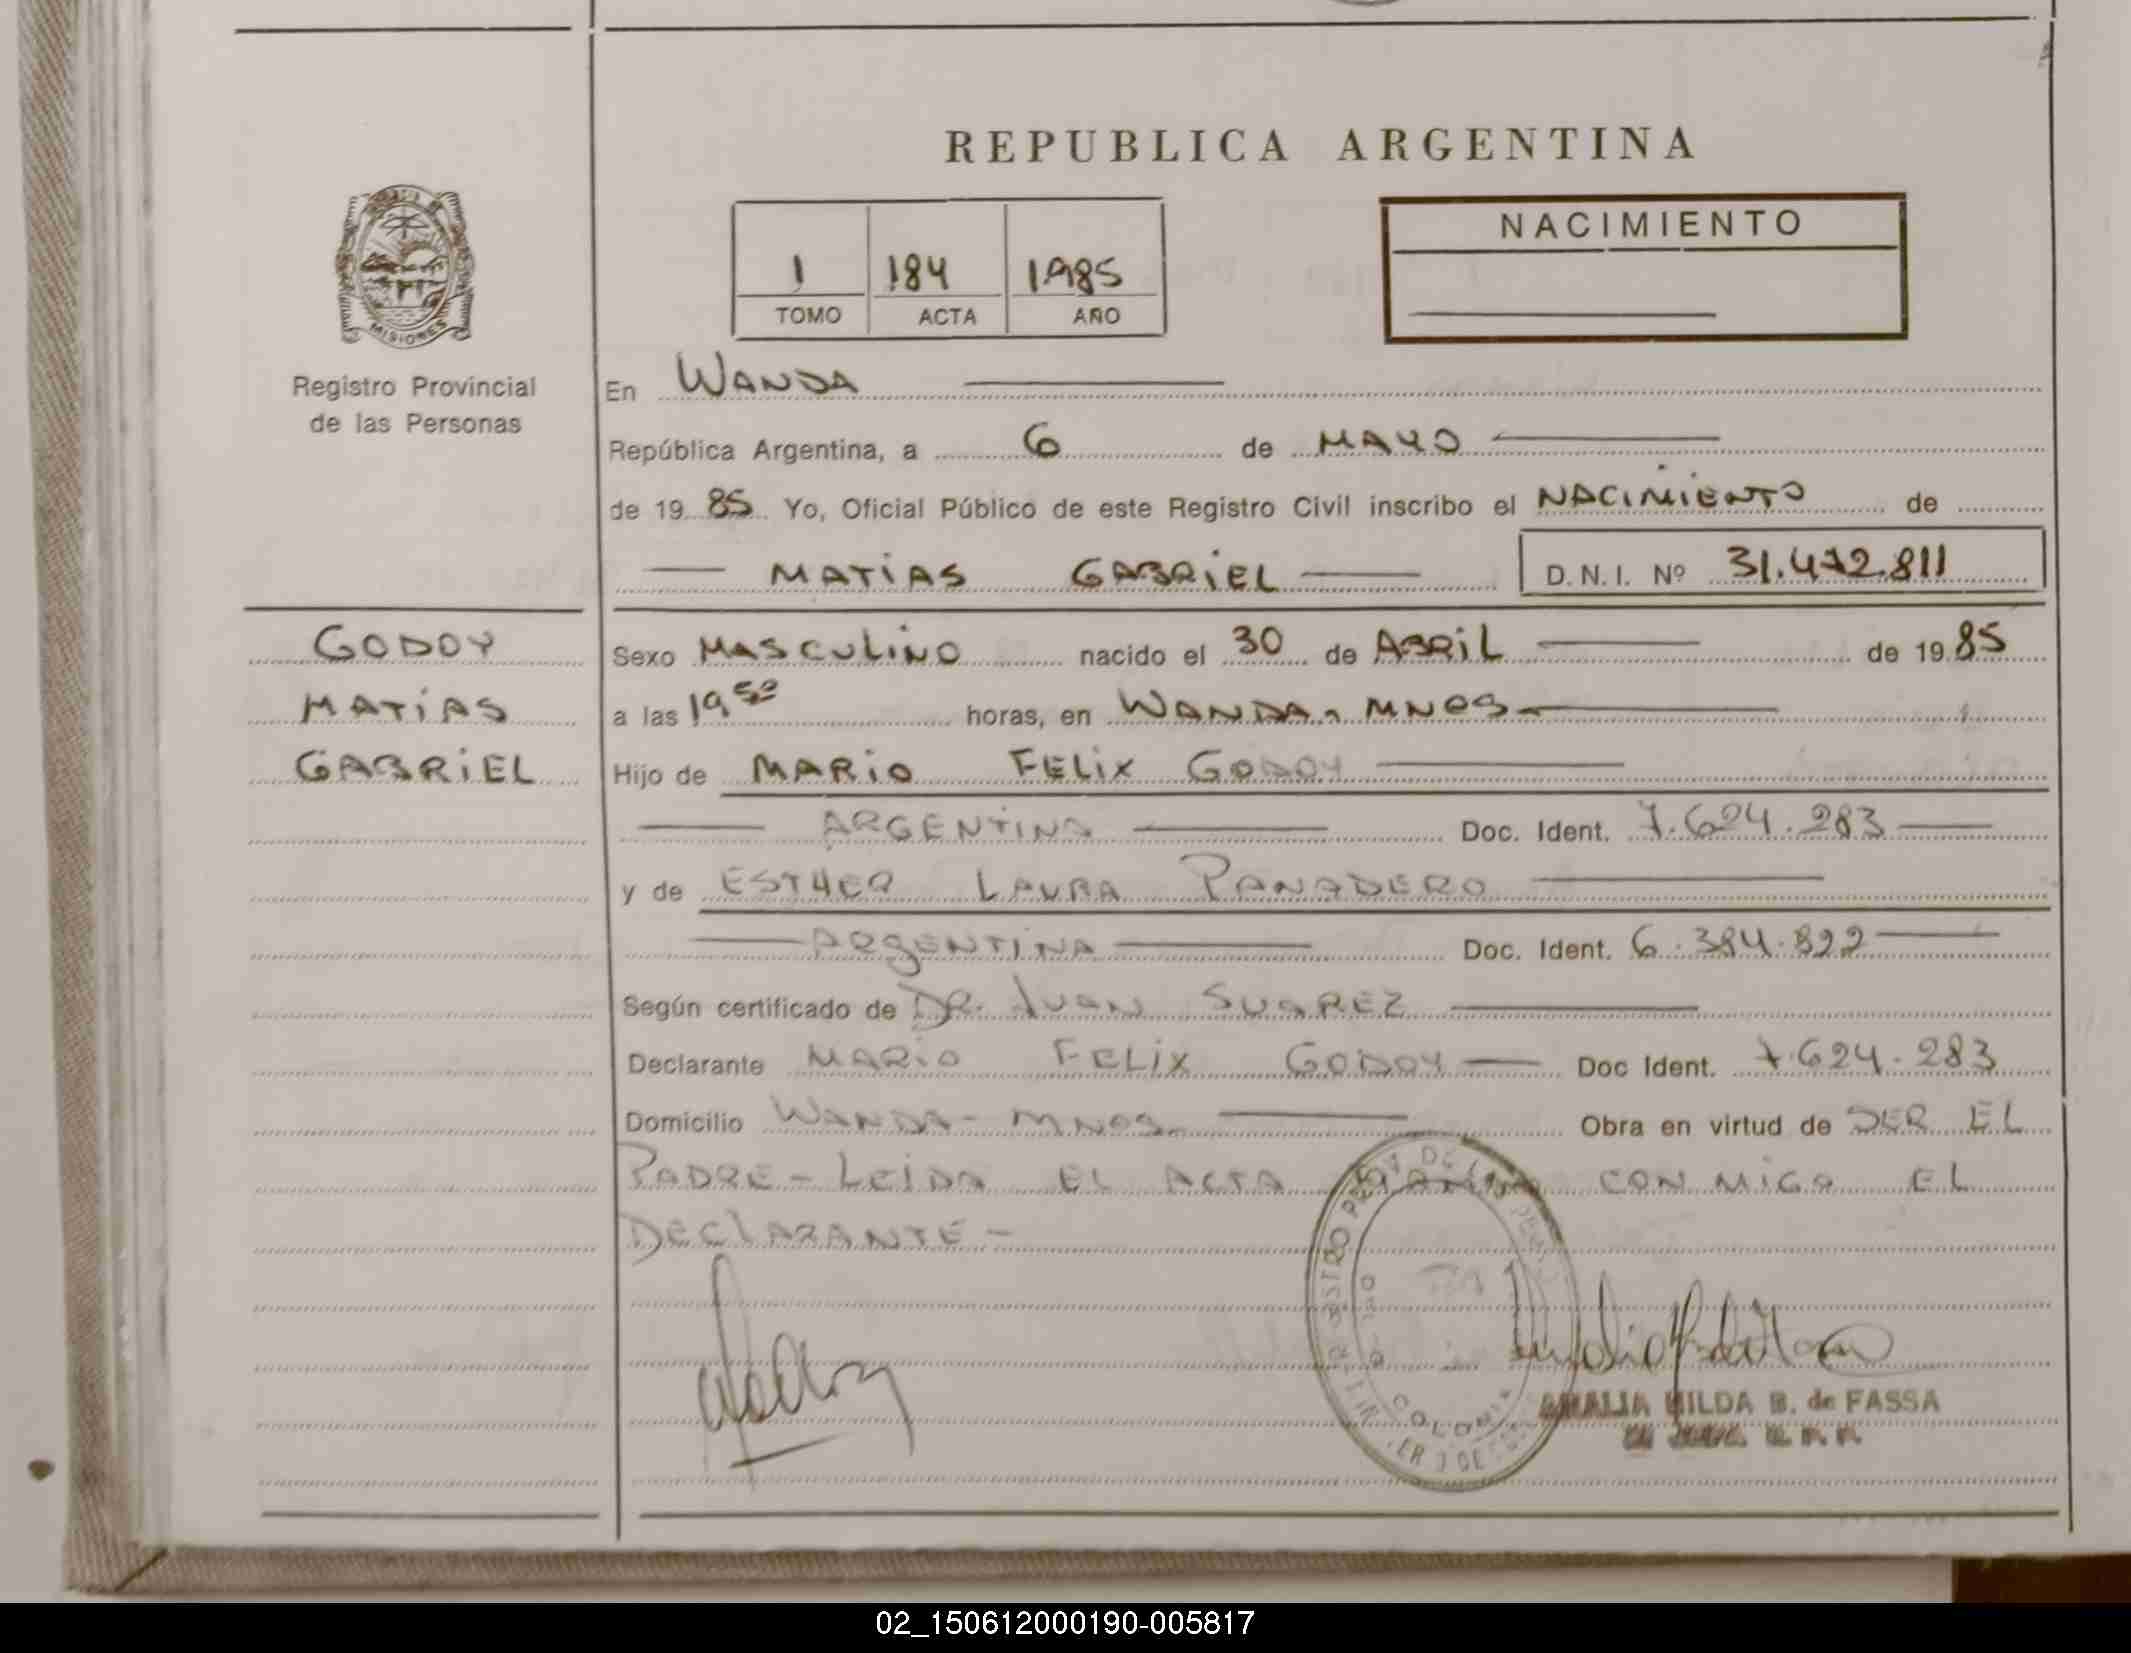 REPUBLICA ARGENTINA
MISIONES
Registro Provincial
de las Personas
1 184 1985
TOMO ACTA AÑO
NACIMIENTO
En WANDA
República Argentina, a 6 de MAYO
de 1985 Yo, Oficial Público de este Registro Civil inscribo el NACIMIENTO de
MATIAS GABRIEL D.N.I. Nº 31.472.811
GODOY
MATIAS
GABRIEL
Sexo MASCULINO nacido el 30 de ABRIL de 1985
a las 19,50 horas, en WANDA - MNES-
Hijo de MARIO FELIX GODOY
ARGENTINA Doc. Ident. 7.624.283
y de ESTHER LAURA PANADERO
ARGENTINA Doc. Ident. 6.384.822
Según certificado de DR. JUAN SUAREZ
Declarante MARIO FELIX GODOY Doc Ident. 7.624.283
Domicilio WANDA - MNES- Obra en virtud de SER EL
PADRE - LEIDA EL ACTA FIRMA CON MIGO EL
DECLARANTE -
COLONIA
AMALIA HILDA B. de FASSA
02_150612000190-005817